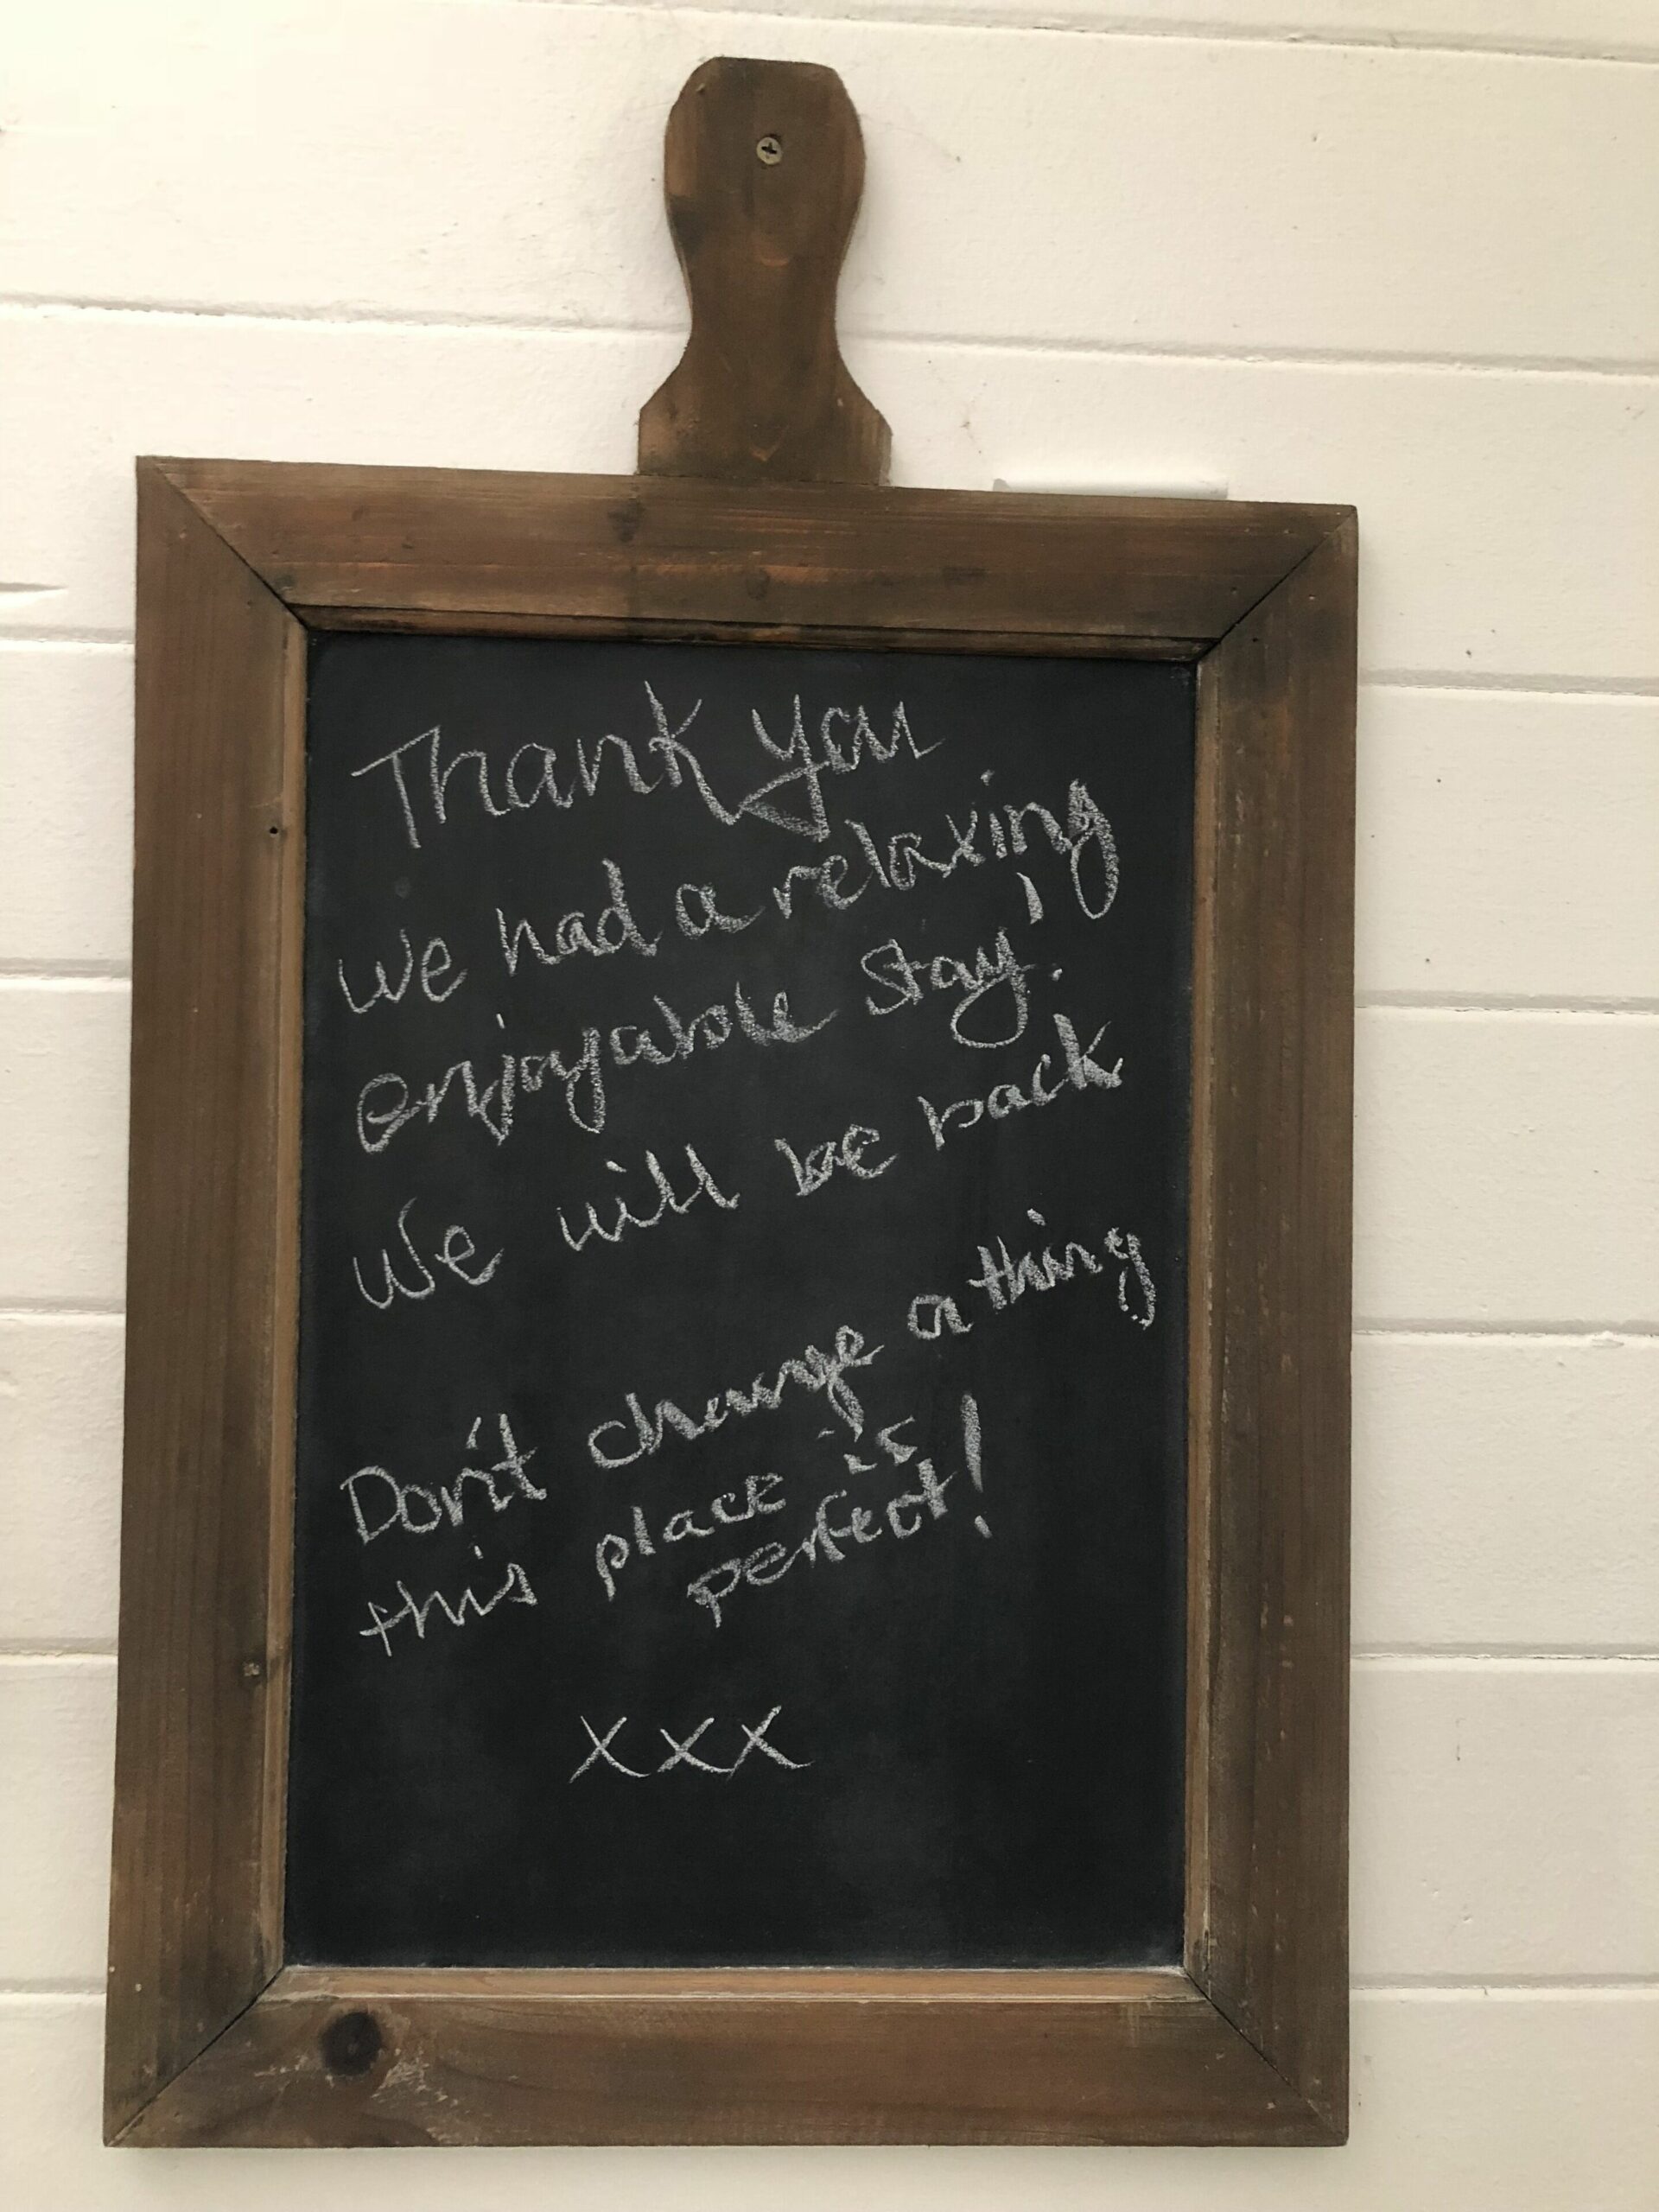 Thank you
We had a relaxing
enjoyable stay!
We will be back
Don't change a thing
this place is
perfect!
xxx